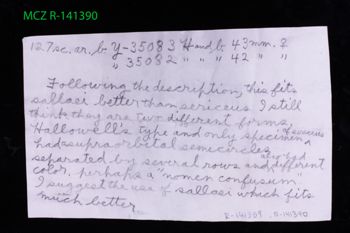 MCZ R-141390
127 sc. ar. b. Y-35083 H and b. 43 mm. ♀
" 35082 " " " 42 " "
Following the description, this fits
sallaei better than sericeus. I still
think they are two different forms,
Hallowell's type and only specimen of sericeus
had supraorbital semicircles
separated by several rows and also had different
color, perhaps a "nomen confusum"
I suggest the use of sallaei which fits
much better.
R-141389, R-141390